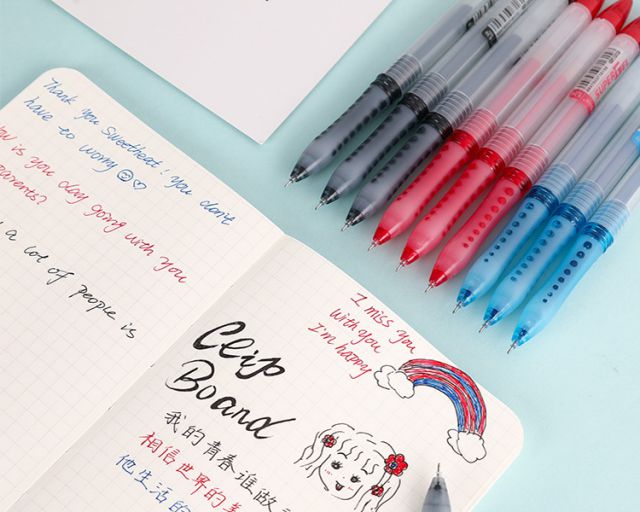 Thank you sweetheart! You don't
have to worry
How is you day going with you
parents?
a lot of people is
I miss you
with you
I'm happy
Clip
Board
我的青春谁做主
相信世界的
他生活的
SUPER